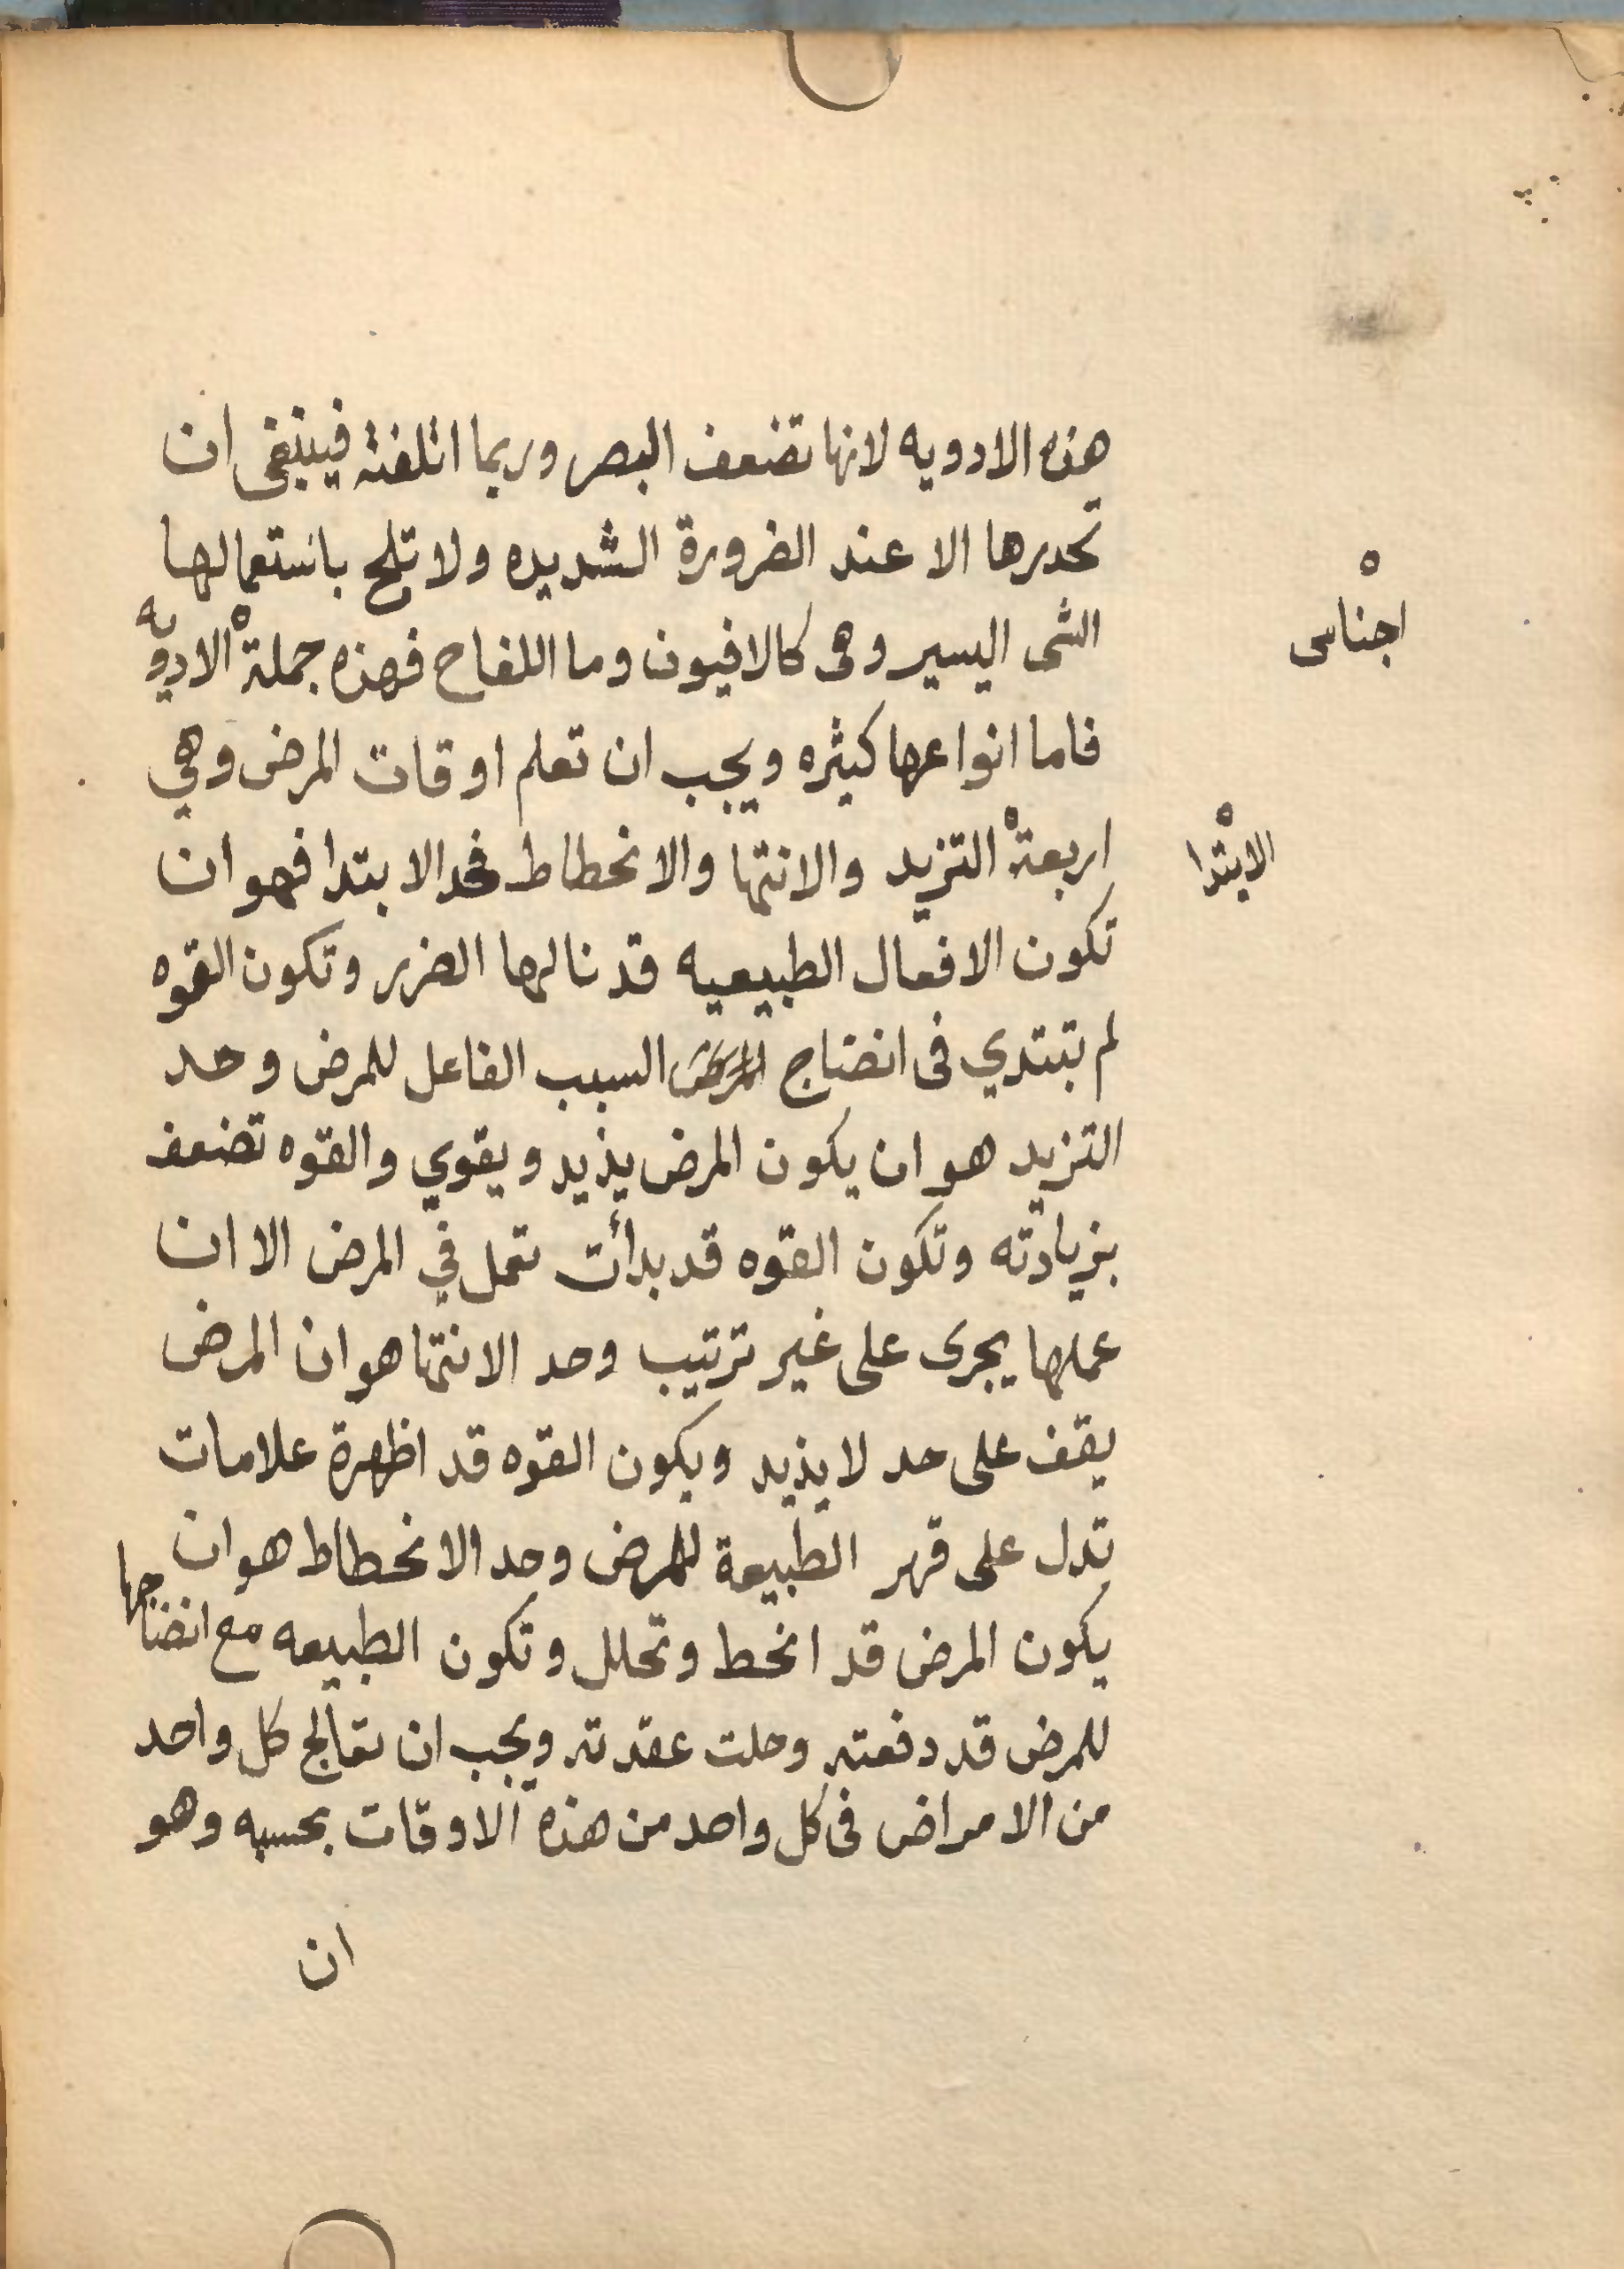 هذه الادويه لانها تضعف البصر وربما اتلفته فينبغى ان
تحدرها الا عند الضرورة الشديده ولا تلح باستعمالها
الشى اليسير وهى كالافيون وما اللفاح فهذه جملة الادويه
اجناس
فاما انواعها كثيره ويجب ان تعلم اوقات المرض وهي
اربعة التزيد والانتها والانحطاط فحد الابتدا فهو ان
الابتدا
تكون الافعال الطبيعيه قد نالها الضرر وتكون القوه
لم تبتدي فى انضاج السبب الفاعل للمرض وحد
التزيد هو ان يكون المرض يذيد ويقوي والقوه تضعف
بزيادته وتكون القوه قد بدأت تعمل في المرض الا ان
عملها يجرى على غير ترتيب وحد الانتها هو ان المرض
يقف على حد لا يذيد ويكون القوه قد اظهرة علامات
تدل على قهر الطبيعة للمرض وحد الانحطاط هو ان
يكون المرض قد انحط وتحلل وتكون الطبيعه مع انضاجها
للمرض قد دفعته وحلت عقدته ويجب ان تعالج كل واحد
من الامراض فى كل واحد من هذه الاوقات بحسبه وهو
ان